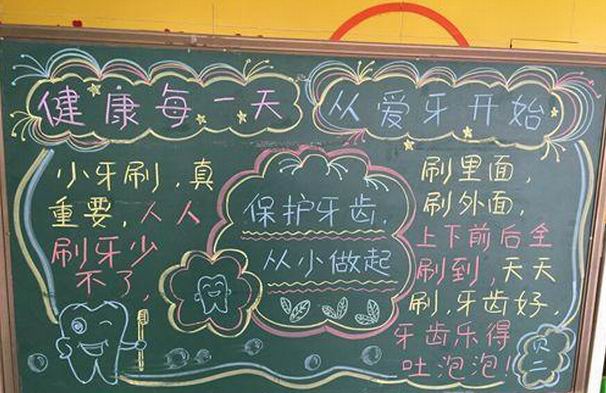 健康每一天
从爱牙开始
小牙刷，真
重要，人人
刷牙少
不了，
保护牙齿，
从小做起
刷里面，
刷外面，
上下前后全
刷到，天天
刷，牙齿好，
牙齿乐得
吐泡泡！